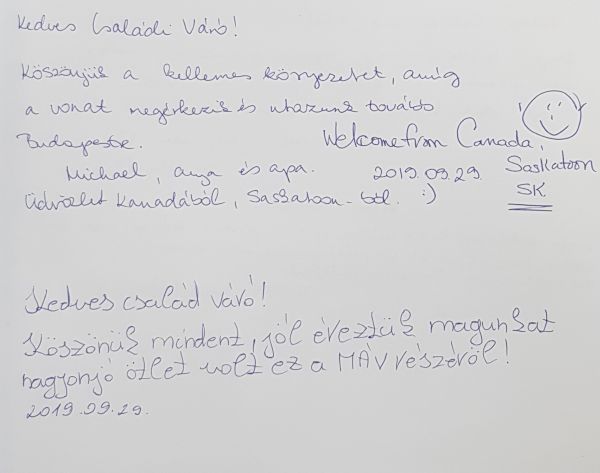 Kedves Családi Váró!
Köszönjük a kellemes környezetet, amíg
a vonat megérkezik és utazunk tovább
Budapestre.
Welcome from Canada,
Saskatoon
SK
Michael, anya és apa.
2019.09.29.
Üdvözlet Kanadából, Saskatoon-ból. :)
Kedves család váró!
Köszönük mindent, jól éreztük magunkat
nagyonjó ötlet volt ez a MÁV részéről!
2019.09.29.